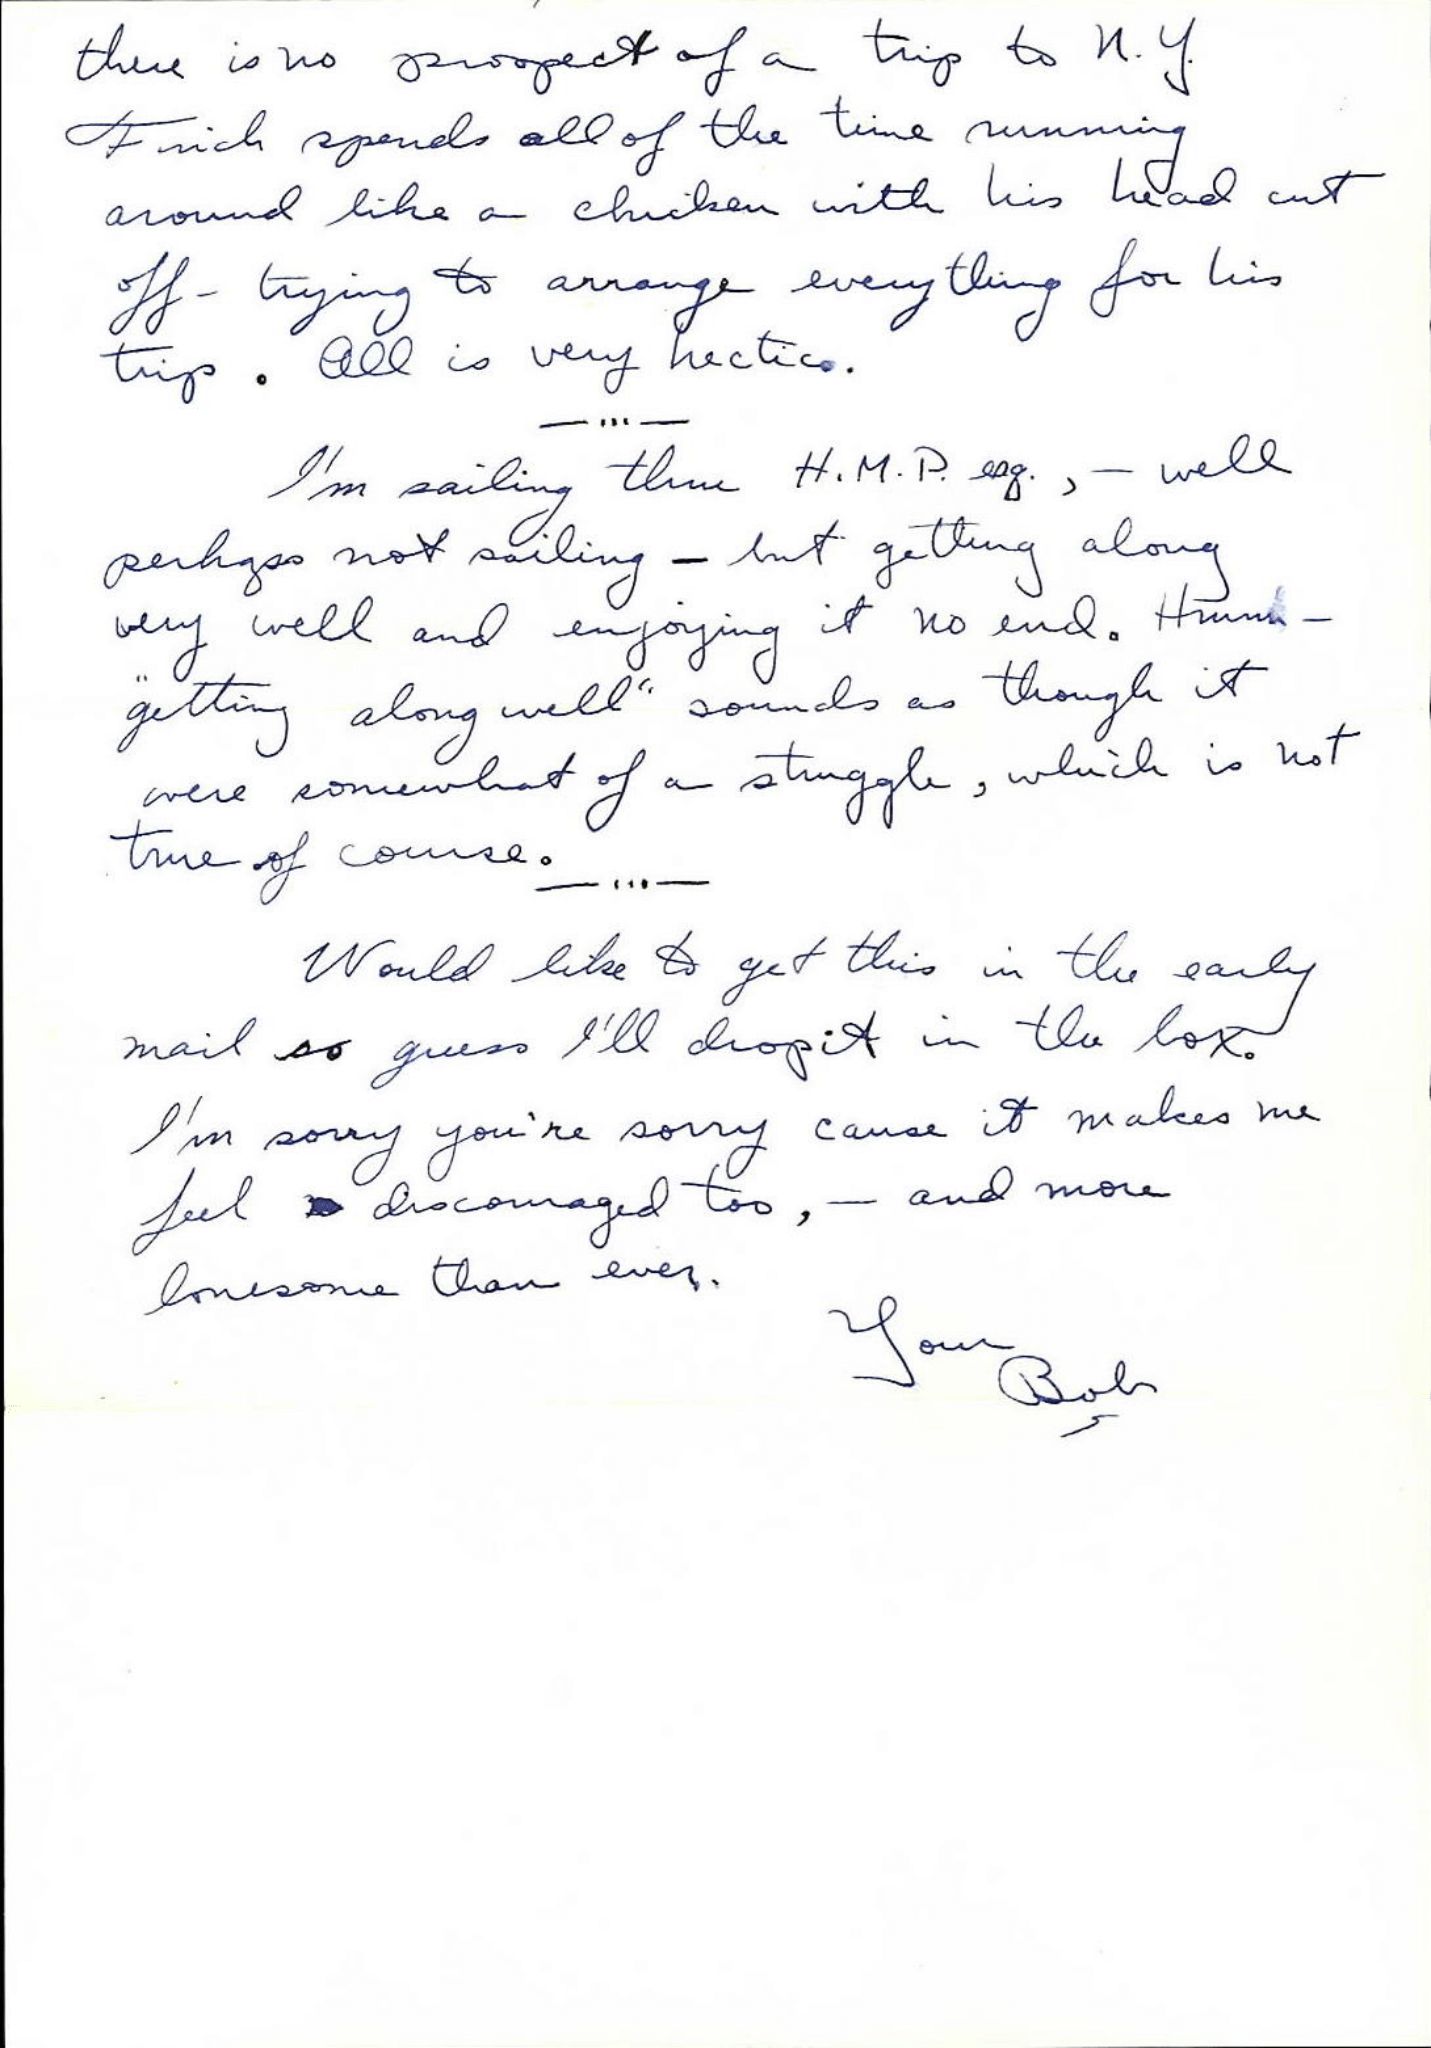 there is no prospect of a trip to N.Y.
spends all of the time running
around like a chicken with his head cut
off - trying to arrange everything for his
trip. All is very hectic.
— ... —
I'm sailing thru H.M.P. esq., — well
perhaps not sailing — but getting along
very well and enjoying it no end. Hmm —
"getting along well" sounds as though it
were somewhat of a struggle, which is not
true of course.
— ... —
Would like to get this in the early
mail so guess I'll drop it in the box.
I'm sorry you're sorry cause it makes me
feel discouraged too, — and more
lonesome than ever.
Your
Bob